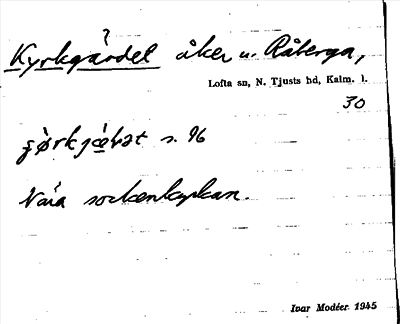 ?
Kyrkgärdet åker u. Råberga,
Lofta sn, N. Tjusts hd, Kalm. l.
30
s. 96
Nära sockenkyrkan.
Ivar Modéer 1945